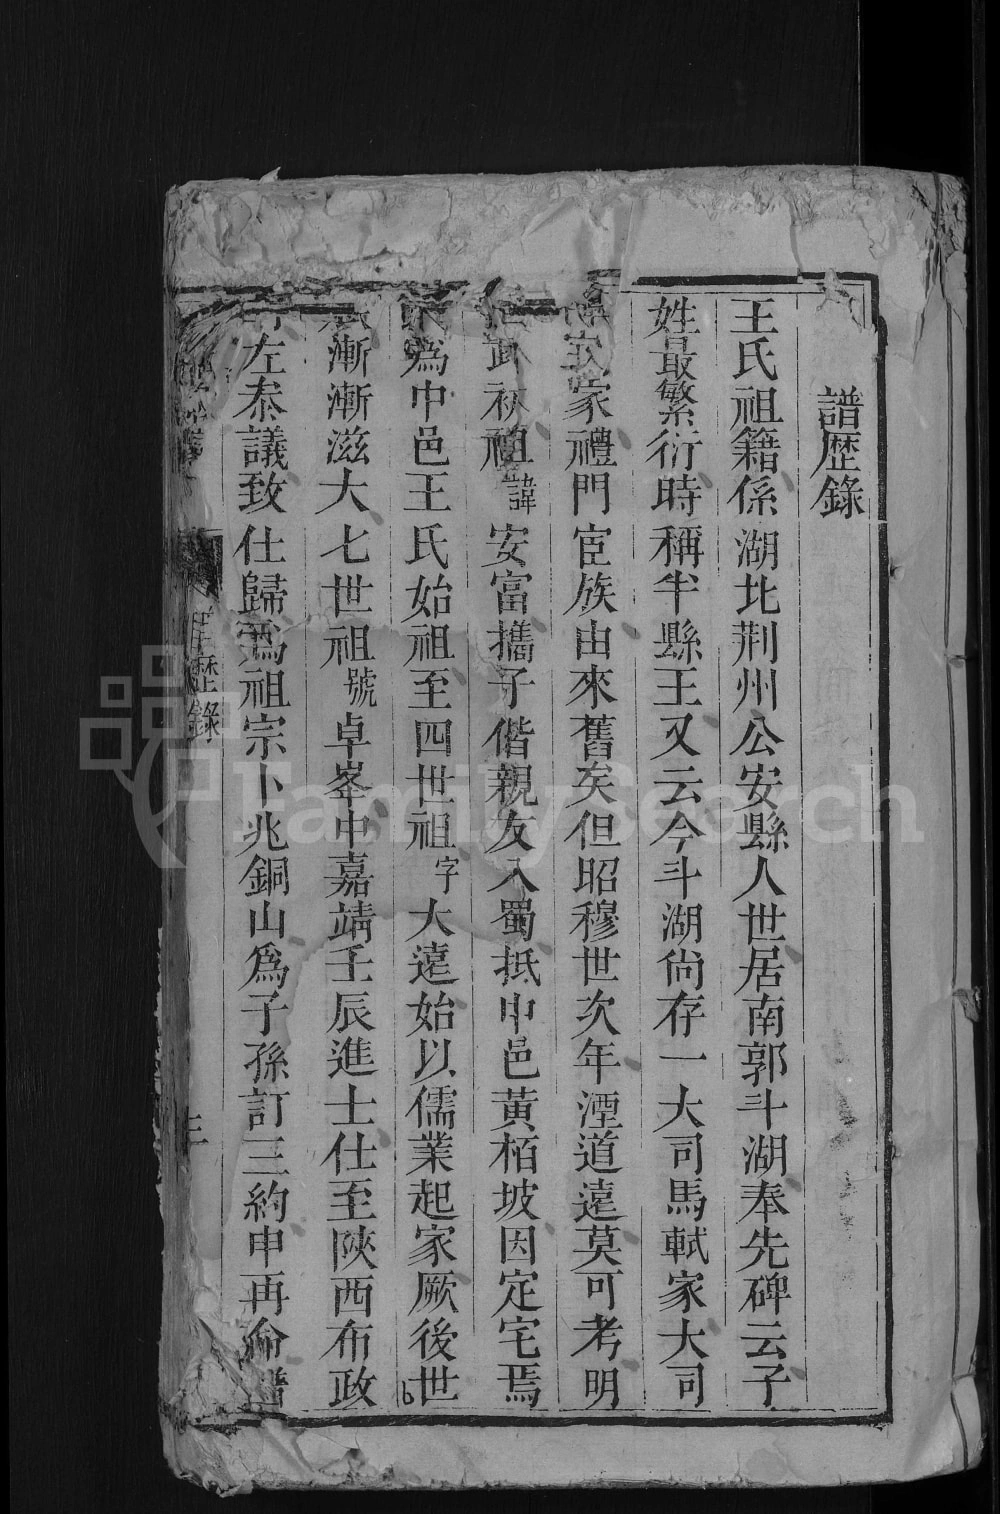 譜歷錄
王氏祖籍係湖北荆州公安縣人世居南郭斗湖奉先碑云子
姓最繁衍時稱半縣王又云今斗湖尙存一大司馬軾家大司
家禮門宦族由來舊矣但昭穆世次年湮道遠莫可考明
武初祖諱安富攜子偕親友入蜀抵中邑黃栢坡因定宅焉
爲中邑王氏始祖至四世祖字大遠始以儒業起家厥後世
漸漸滋大七世祖號卓峯中嘉靖壬辰進士仕至陝西布政
左叅議致仕歸爲祖宗卜兆銅山爲子孫訂三約申再命譜
歷錄
三
FamilySearch